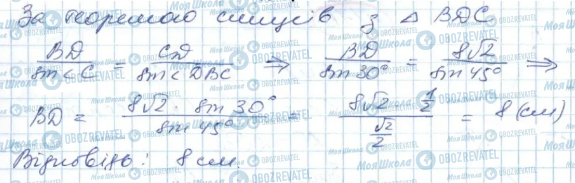 За теоремою синусів з △ BDC
BD / sin∠C = CD / sin∠DBC ⇒ BD / sin 30° = 8√2 / sin 45° ⇒
BD = 8√2 · sin 30° / sin 45° = 8√2 · 1/2 / √2/2 = 8 (см)
Відповідь: 8 см